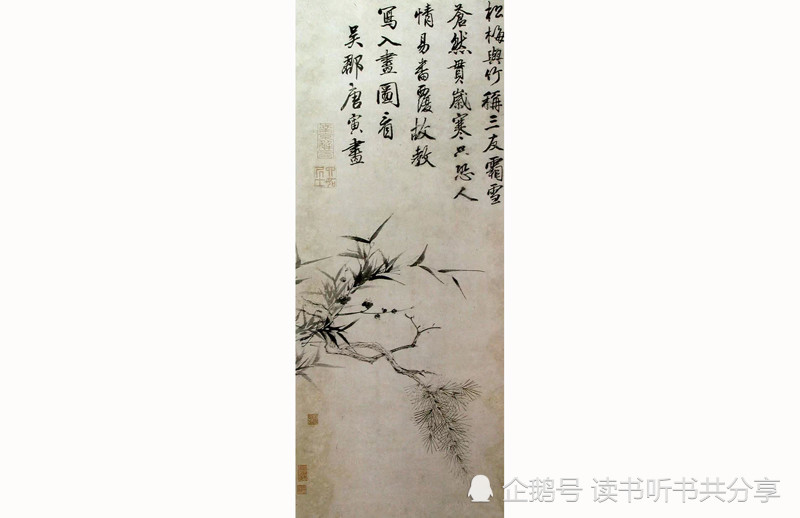 松梅與竹稱三友霜雪
蒼然貫歲寒只恐人
情易番覆故教
寫入畫圖看
吳郡唐寅畫
企鹅号 读书听书共分享